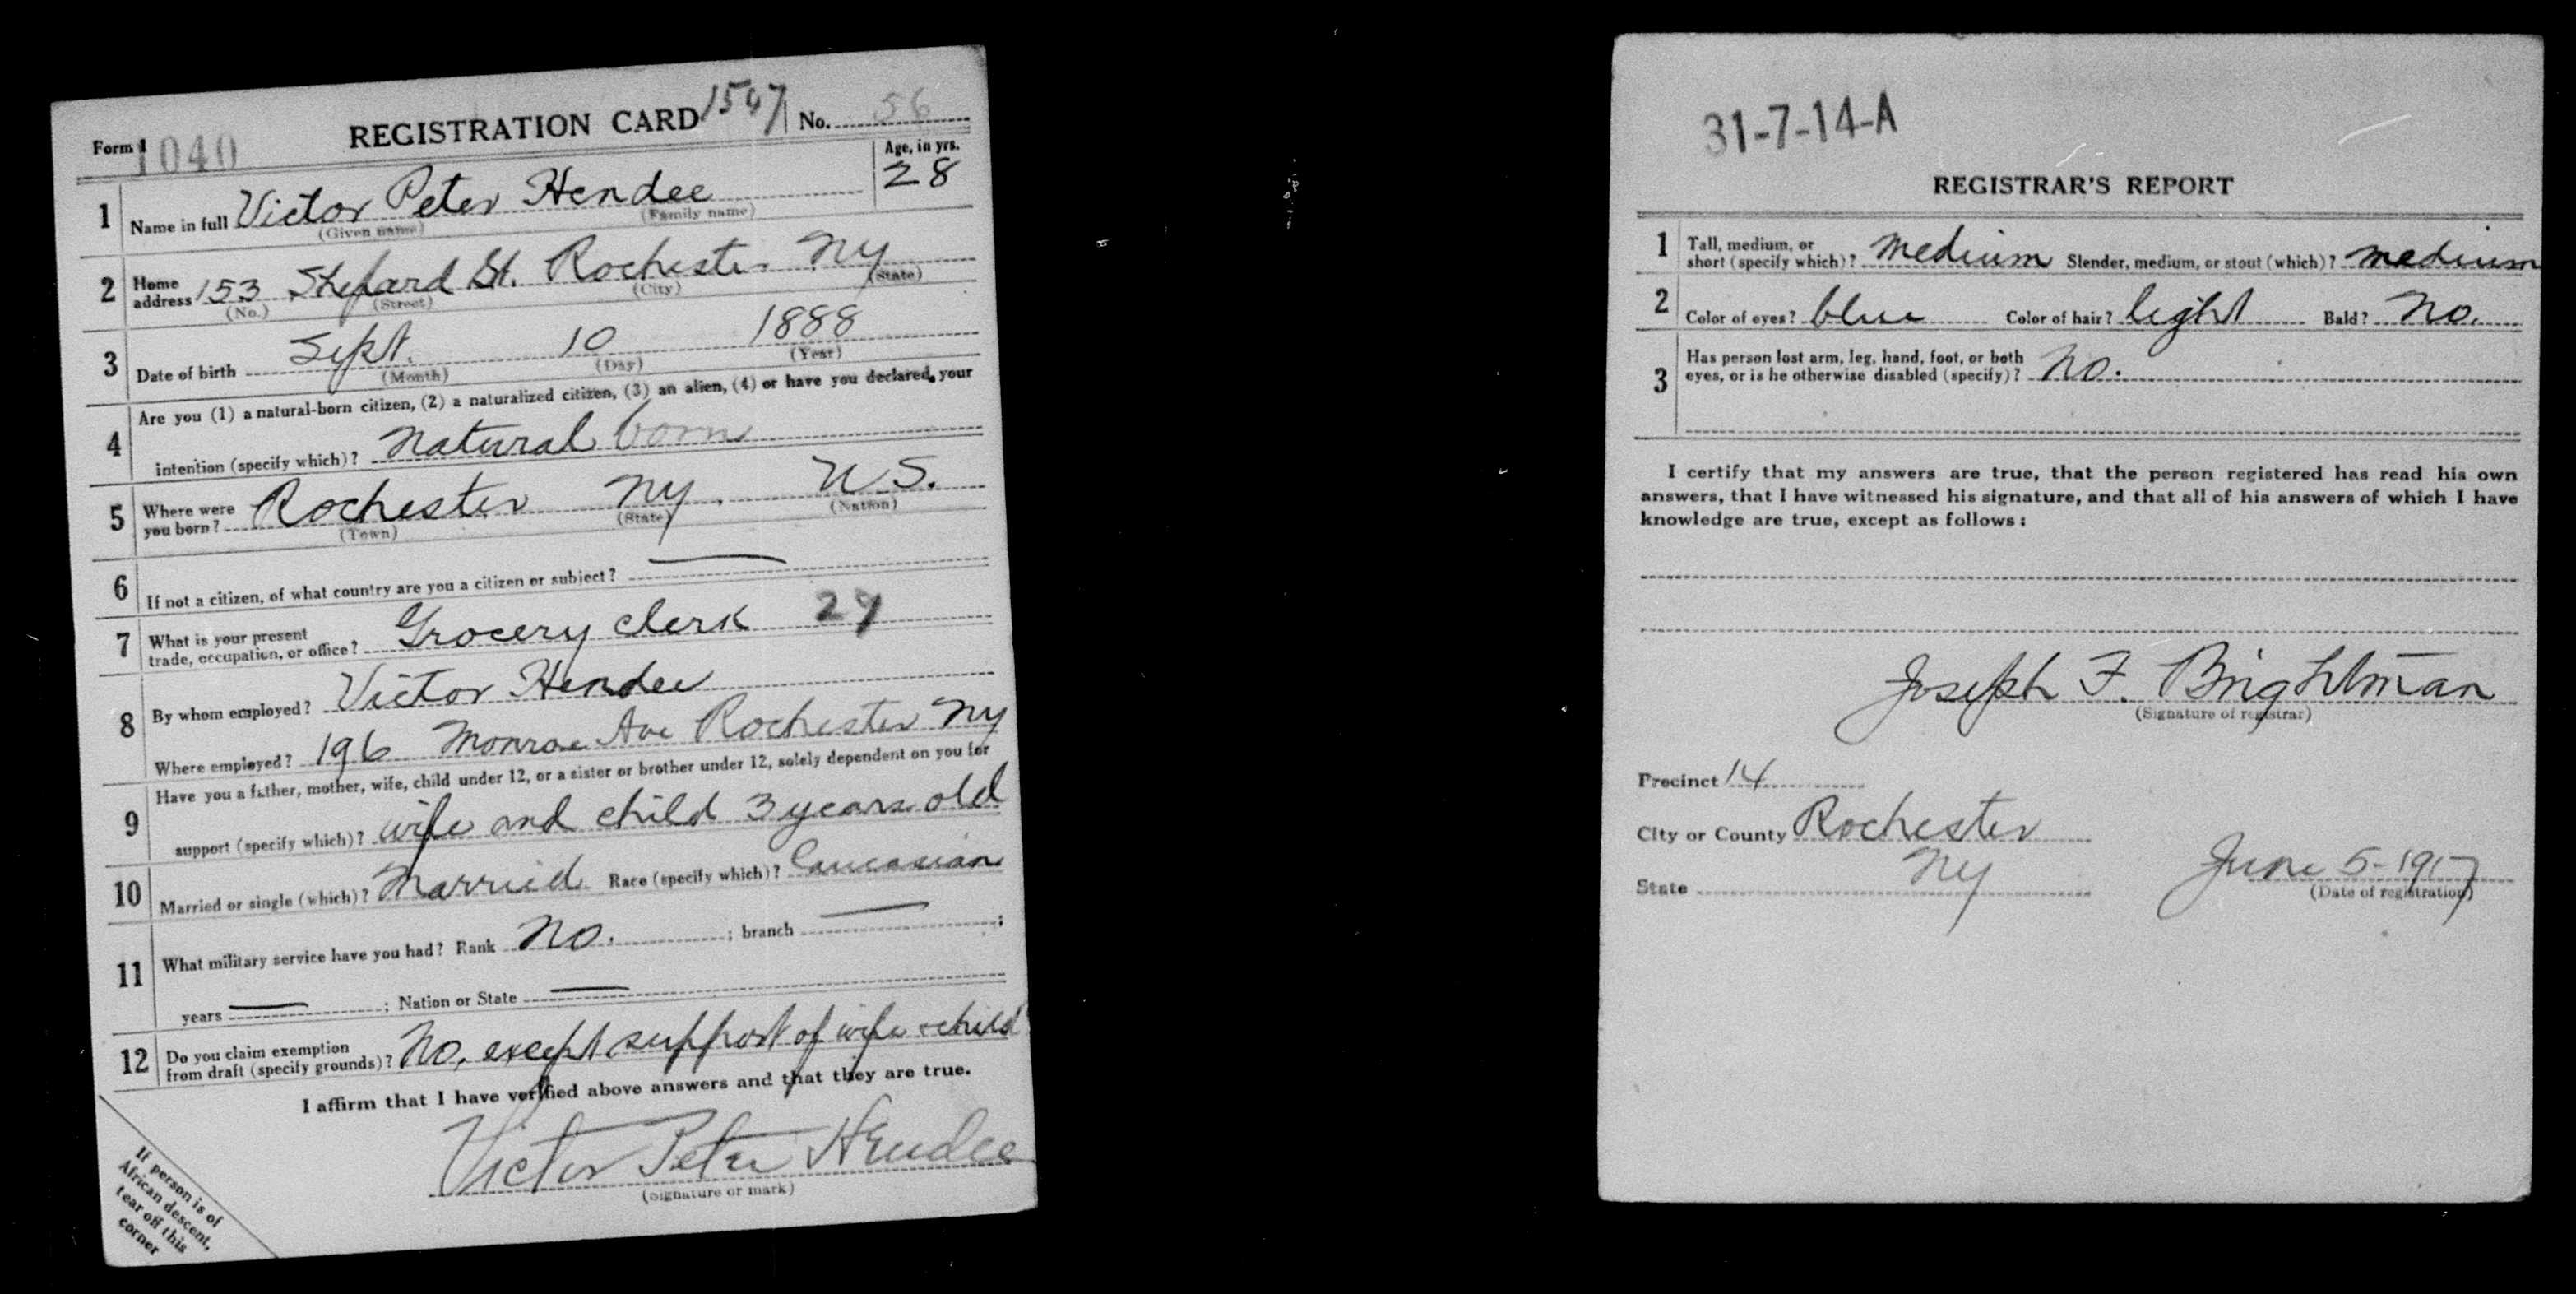 Form 1 1040 REGISTRATION CARD 1547 No. 56
1 Name in full Victor Peter Hendee Age, in yrs. 28
(Given name) (Family name)
2 Home address 153 Shepard St. Rochester NY
(No.) (Street) (City) (State)
3 Date of birth Sept. 10 1888
(Month) (Day) (Year)
4 Are you (1) a natural-born citizen, (2) a naturalized citizen, (3) an alien, (4) or have you declared your
intention (specify which)? Natural born
5 Where were you born? Rochester NY. U.S.
(Town) (State) (Nation)
6 If not a citizen, of what country are you a citizen or subject? —
7 What is your present trade, occupation, or office? Grocery clerk 27
8 By whom employed? Victor Hendee
Where employed? 196 Monroe Ave Rochester NY
9 Have you a father, mother, wife, child under 12, or a sister or brother under 12, solely dependent on you for
support (specify which)? wife and child 3 years old
10 Married or single (which)? Married Race (specify which)? Caucasian
11 What military service have you had? Rank No. ; branch — ;
years — ; Nation or State —
12 Do you claim exemption from draft (specify grounds)? No, except support of wife + child
I affirm that I have verified above answers and that they are true.
Victor Peter Hendee
(Signature or mark)
If person is of
African descent,
tear off this
corner
31-7-14-A
REGISTRAR'S REPORT
1 Tall, medium, or short (specify which)? Medium Slender, medium, or stout (which)? medium
2 Color of eyes? blue Color of hair? light Bald? No.
3 Has person lost arm, leg, hand, foot, or both
eyes, or is he otherwise disabled (specify)? No.
I certify that my answers are true, that the person registered has read his own
answers, that I have witnessed his signature, and that all of his answers of which I have
knowledge are true, except as follows:
Joseph F. Brightman
(Signature of registrar)
Precinct 14
City or County Rochester
State NY June 5-1917
(Date of registration)